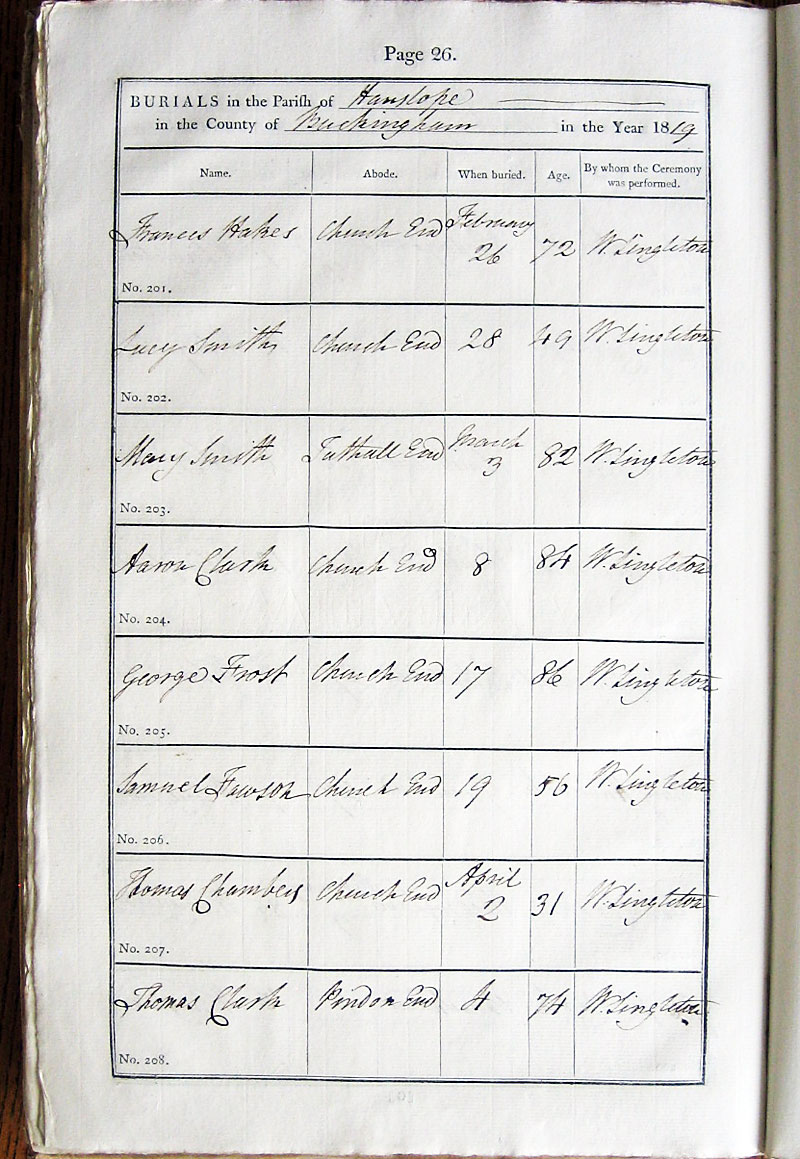 Page 26.
BURIALS in the Parish of Hanslope
in the County of Buckingham in the Year 1819
Name. Abode. When buried. Age. By whom the Ceremony was performed.
Frances Hakes Church End February 26 72 W. Singleton
No. 201.
Lucy Smith Church End 28 49 W. Singleton
No. 202.
Mary Smith Tathall End March 3 82 W. Singleton
No. 203.
Aaron Clark Church End 8 84 W. Singleton
No. 204.
George Frost Church End 17 86 W. Singleton
No. 205.
Samuel Church End 19 56 W. Singleton
No. 206.
Thomas Chambers Church End April 2 31 W. Singleton
No. 207.
Thomas Clark Pindon End 4 74 W. Singleton
No. 208.